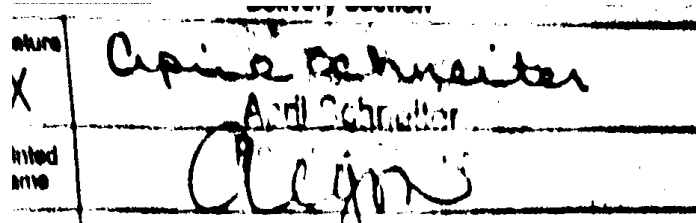 Delivery Section
ature
X
April Schneiter
April Schneiter
inted
ame